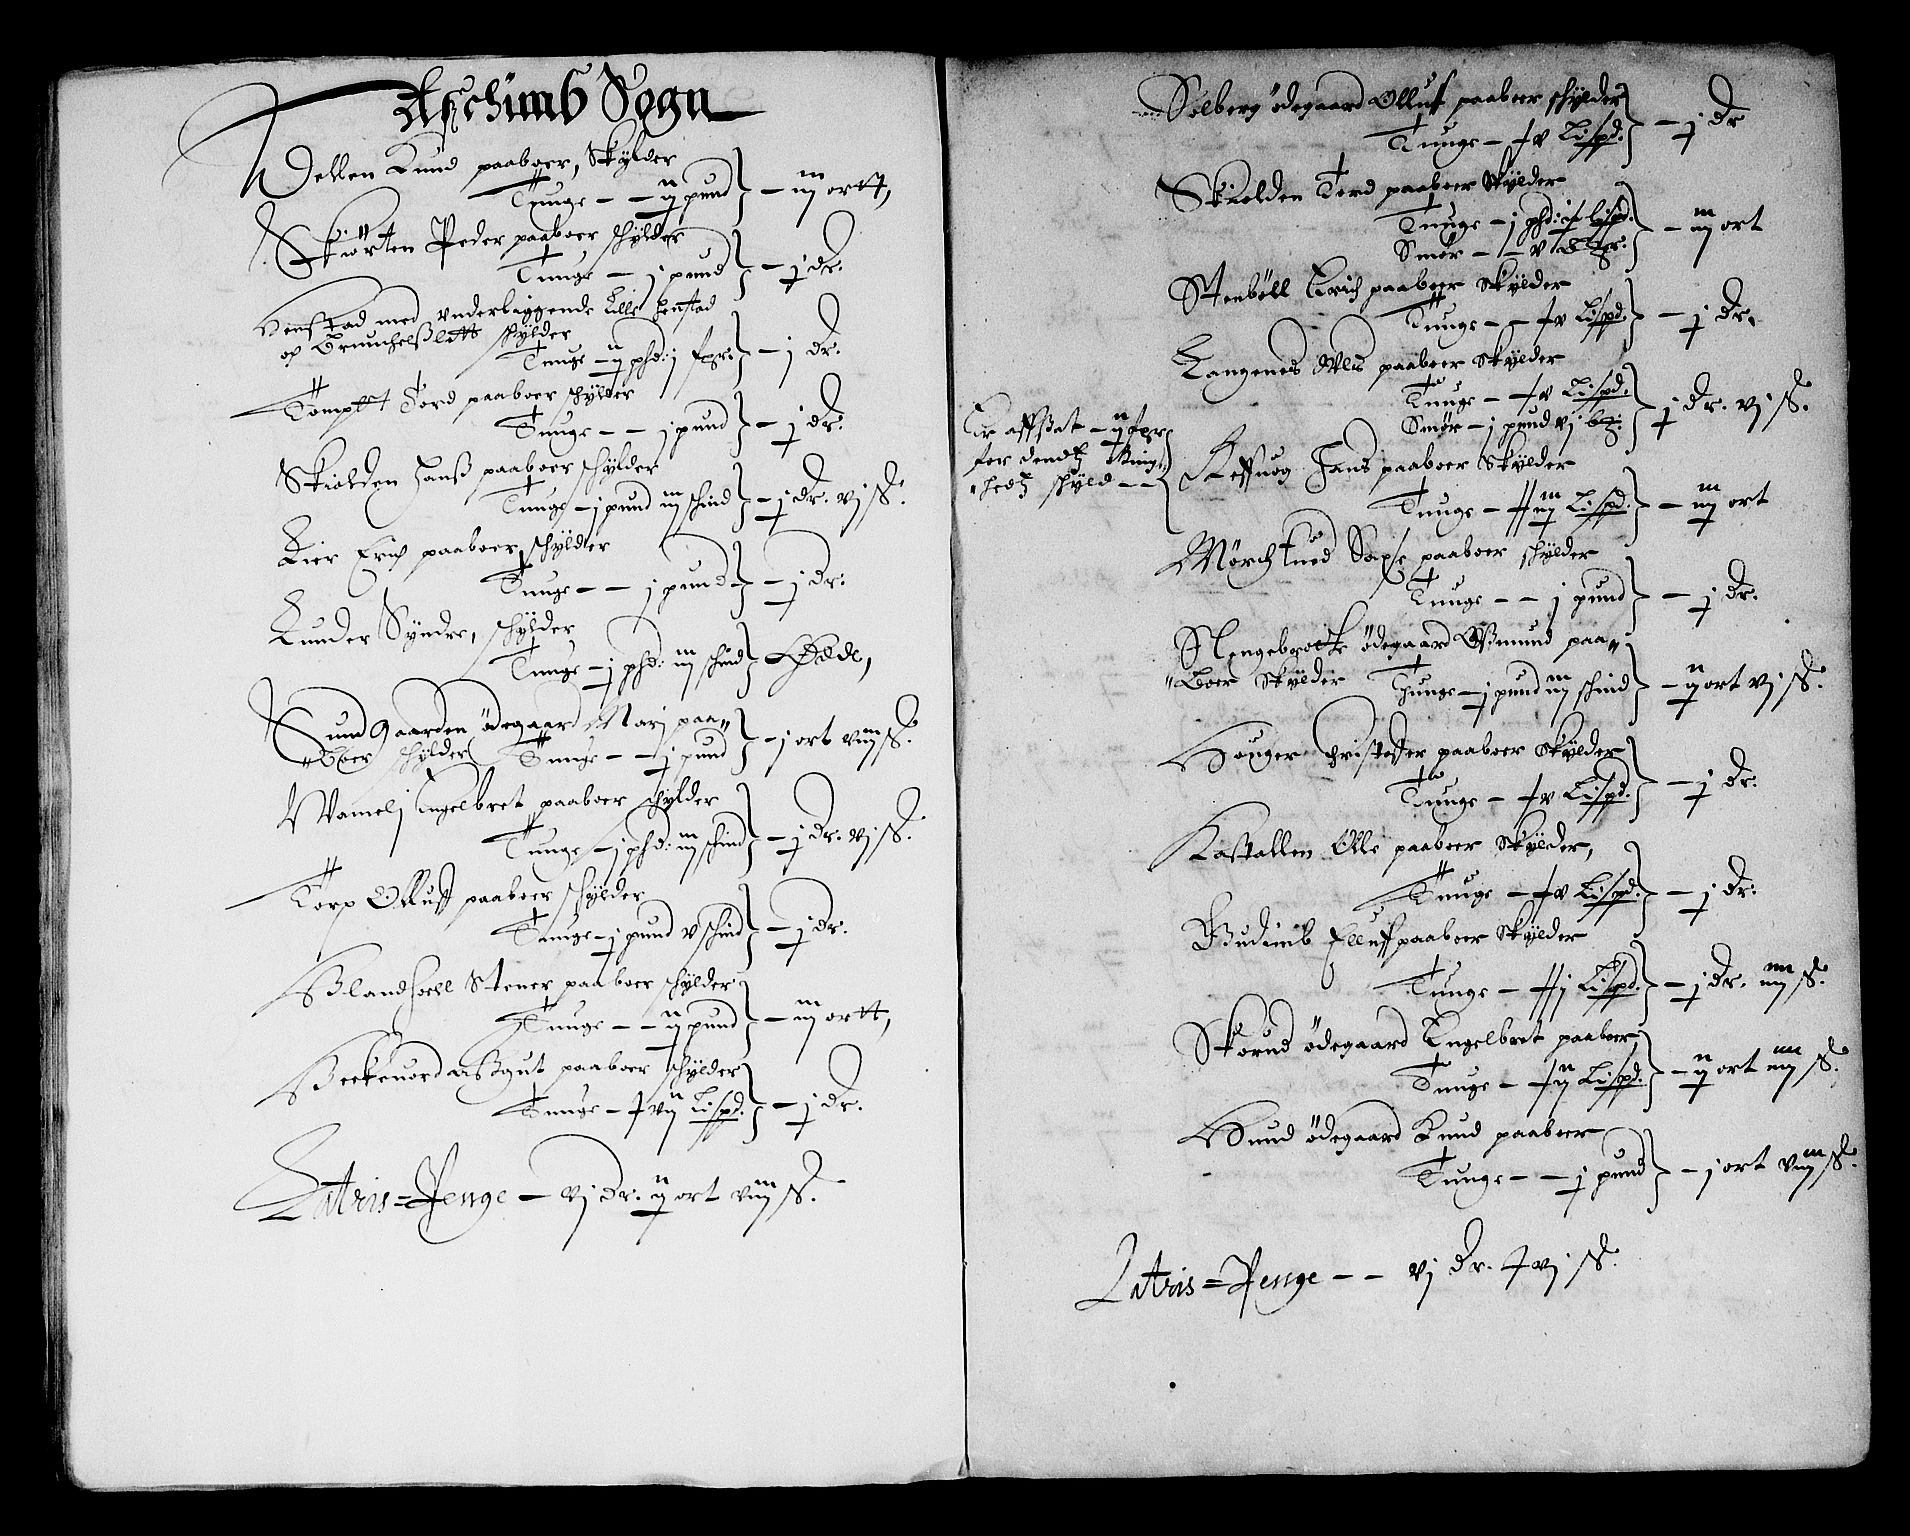 Aschimb Sogn
Dellen Knud paaboer, Skylder
Tunge — — ij pund } — iij ortt,
Skiörten Peder paaboer schÿlder
Tunge — j pund } — j dr:
Henstad med underliggende Lille Henstad
oc schÿlder
Tunge — ij phd: j fgr: } — j dr:
Tomptt Tord paaboer schÿlder
Tunge — — j pund } — j dr:
Skiolden Hanß paaboer schÿlder
Tunge — j pund iij schind } — j dr. vj ß.
Lier Erich paaboer schÿlder
Tunge — — j pund } — j dr:
Lunder Sÿndre, schÿlder
Tunge — j phd: iij schind } Øede,
Sund Gaarden ödegaard Marj paa„
„Boer schÿlder Tunge — — j pund } — j ort viij ß.
Vamelj Engelbret paaboer schÿlder
Tunge — j phd: iij schind } — j dr. vj ß.
Torp Olluf paaboer schÿlder
Tunge — j pund v schind } — j dr.
Blandhoell Stener paaboer schÿlder
Tunge — — ij pund } — iij ortt,
Beckeuord Aßgut paaboer schÿlder
Tunge — ƚ vij Lispd. } — j dr.
Lateris = Penge — vj dr. ij ort viij ß.
Solberg ödegaard Olluf paaboer schÿlder
Tunge — ƚ v Lispd. } — j dr
Skiolden Tord paaboer Skÿlder
Tunge — j phd: Lispd.
Smör — — v } — iij ort
Stenböll Erich paaboer Skÿlder
Tunge — — ƚ v Lispd. } — j dr.
Langenes Nels paaboer Skÿlder
Tunge — ƚ v Lispd.
Smör — j pund vj } j dr. vj ß.
Er affsat — ij fgr
for dend
schÿld — —
Reffuog Hans paaboer Skÿlder
Tunge — ƚƚ iij Lispd. } — iij ort
Mörchtued paaboer schÿlder
Tunge — — j pund } — j dr.
Slengebrotte ödegaard Oßmund paa„
„Boer Skÿlder Thunge — j pund iij schind } — ij ort vj ß.
Houger Christoffer paaboer Skÿlder
Tunge — ƚ v Lispd. } — j dr.
Kastallen Olle paaboer Skÿlder,
Tunge — ƚ v Lispd. } — j dr:
Gudimb Elluff paaboer Skÿlder
Tunge — ƚƚ j Lispd. } — j dr. iiij ß.
Skorud ödegaard Engelbret paaboer
Tunge — ƚ ij Lispd. } — ij ort iiij ß.
Hund ödegaard Knud paaboer
Tunge — — j pund } — j ort viij ß.
Lateris = Penge — — vj dr. ƚ vj ß.